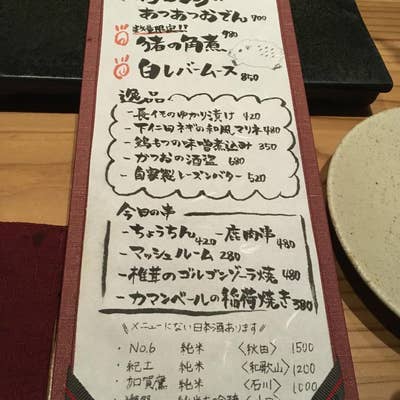 あつあつおでん 700
数量限定!!
猪の角煮 980
白レバームース 850
逸品
-長イモのゆかり漬け 420
-下仁田ネギの和風マリネ 480
-鶏もつの味噌煮込み 350
-かつおの酒盗 680
-自家製レーズンバター 520
今日の串
-ちょうちん 420 -鹿肉串 480
-マッシュルーム 280
-椎茸のゴルゴンゾーラ焼 480
-カマンベールの稲荷焼き 380
\\メニューにない日本酒あります//
・No.6 純米 〈秋田〉 1500
・紀土 純米 〈和歌山〉 1200
・加賀鳶 純米 〈石川〉 1000